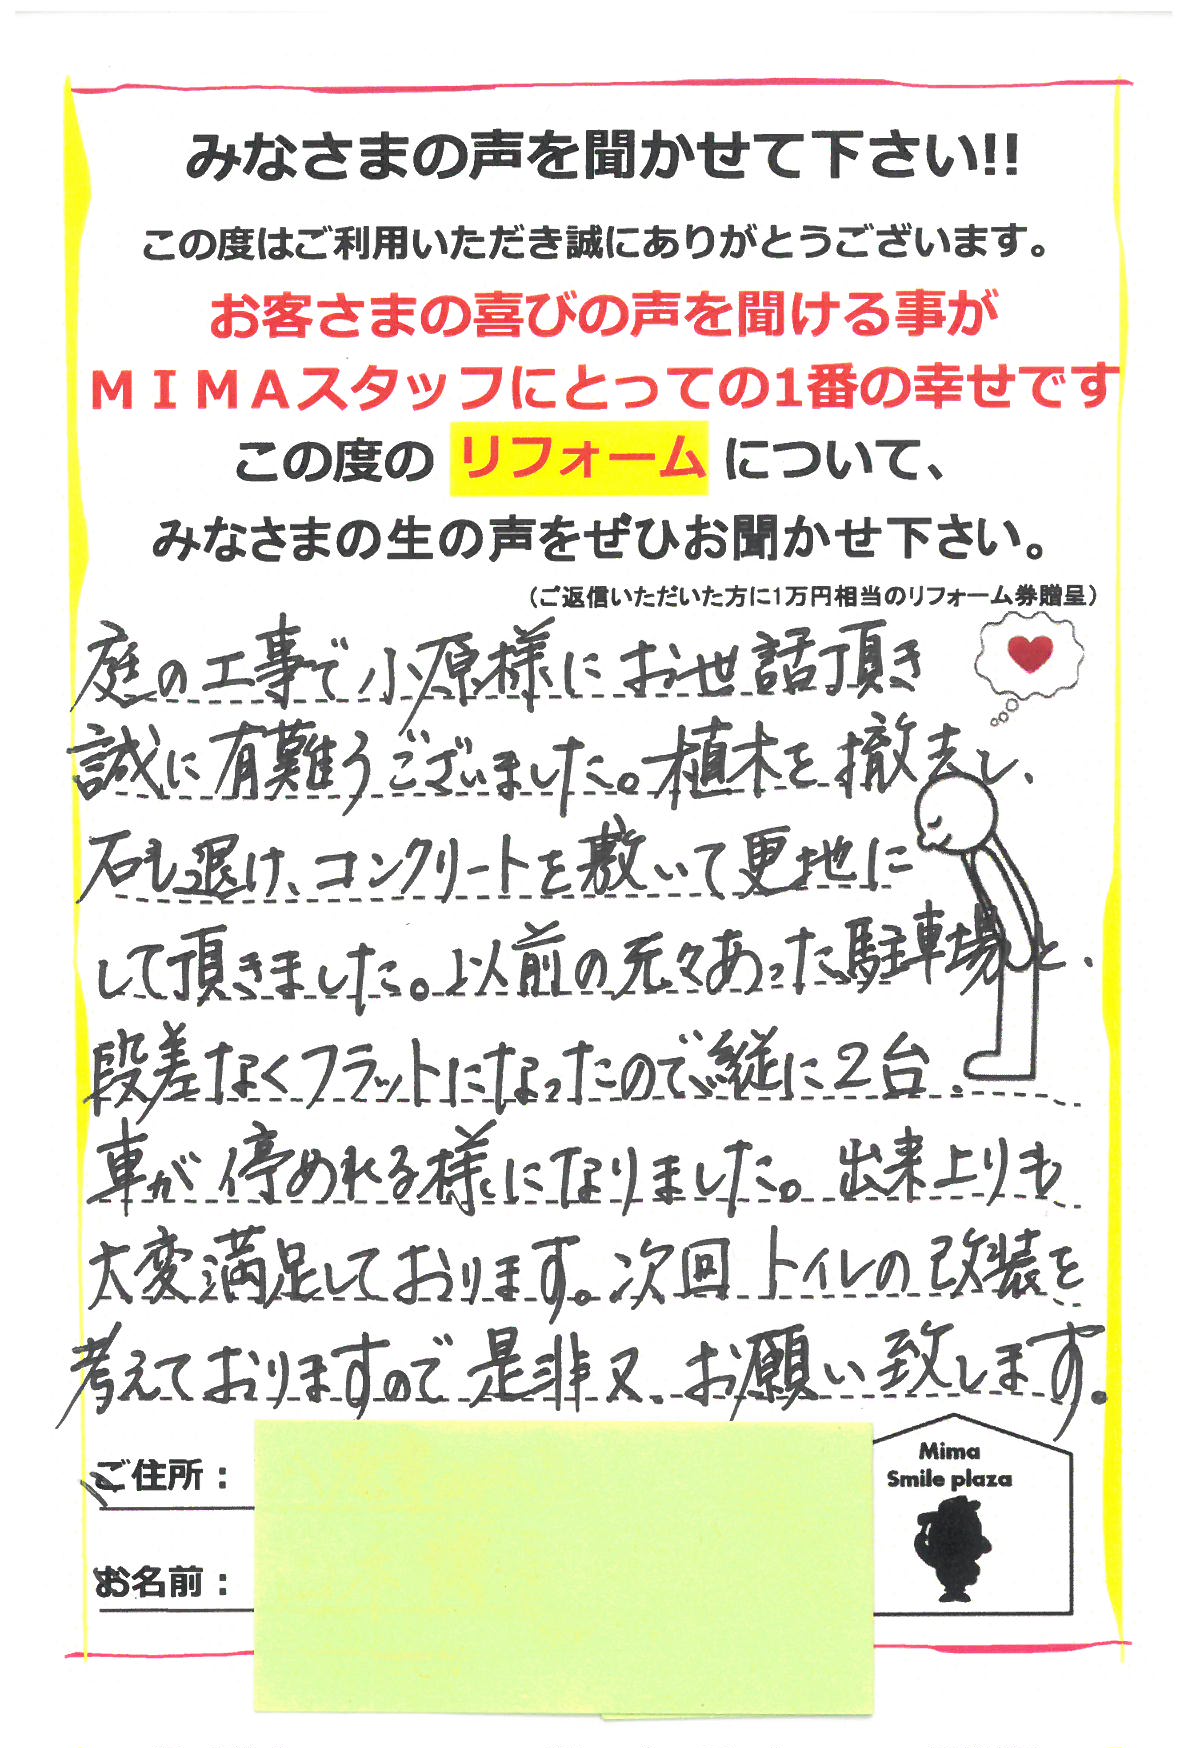 みなさまの声を聞かせて下さい!!
この度はご利用いただき誠にありがとうございます。
お客さまの喜びの声を聞ける事が
ＭＩＭＡスタッフにとっての1番の幸せです
この度の リフォーム について、
みなさまの生の声をぜひお聞かせ下さい。
（ご返信いただいた方に1万円相当のリフォーム券贈呈）
庭の工事で小原様にお世話頂き
誠に有難うございました。植木を撤去し、
石も退け、コンクリートを敷いて更地に
して頂きました。以前の元々あった駐車場と、
段差なくフラットになったので、縦に2台、
車が停めれる様になりました。出来上りも
大変満足しております。次回トイレの改装を
考えておりますので是非又、お願い致します。
Mima
Smile plaza
ご住所：
お名前：